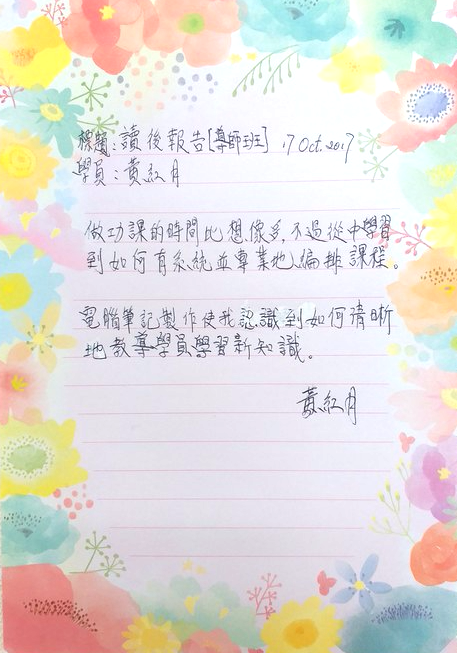 標題:讀後報告[導師班] 17 Oct. 2017
學員:黃紅月
做功課的時間比想像多,不過從中學習
到如何有系統並專業地編排課程。
電腦筆記製作使我認識到如何清晰
地教導學員學習新知識。
黃紅月